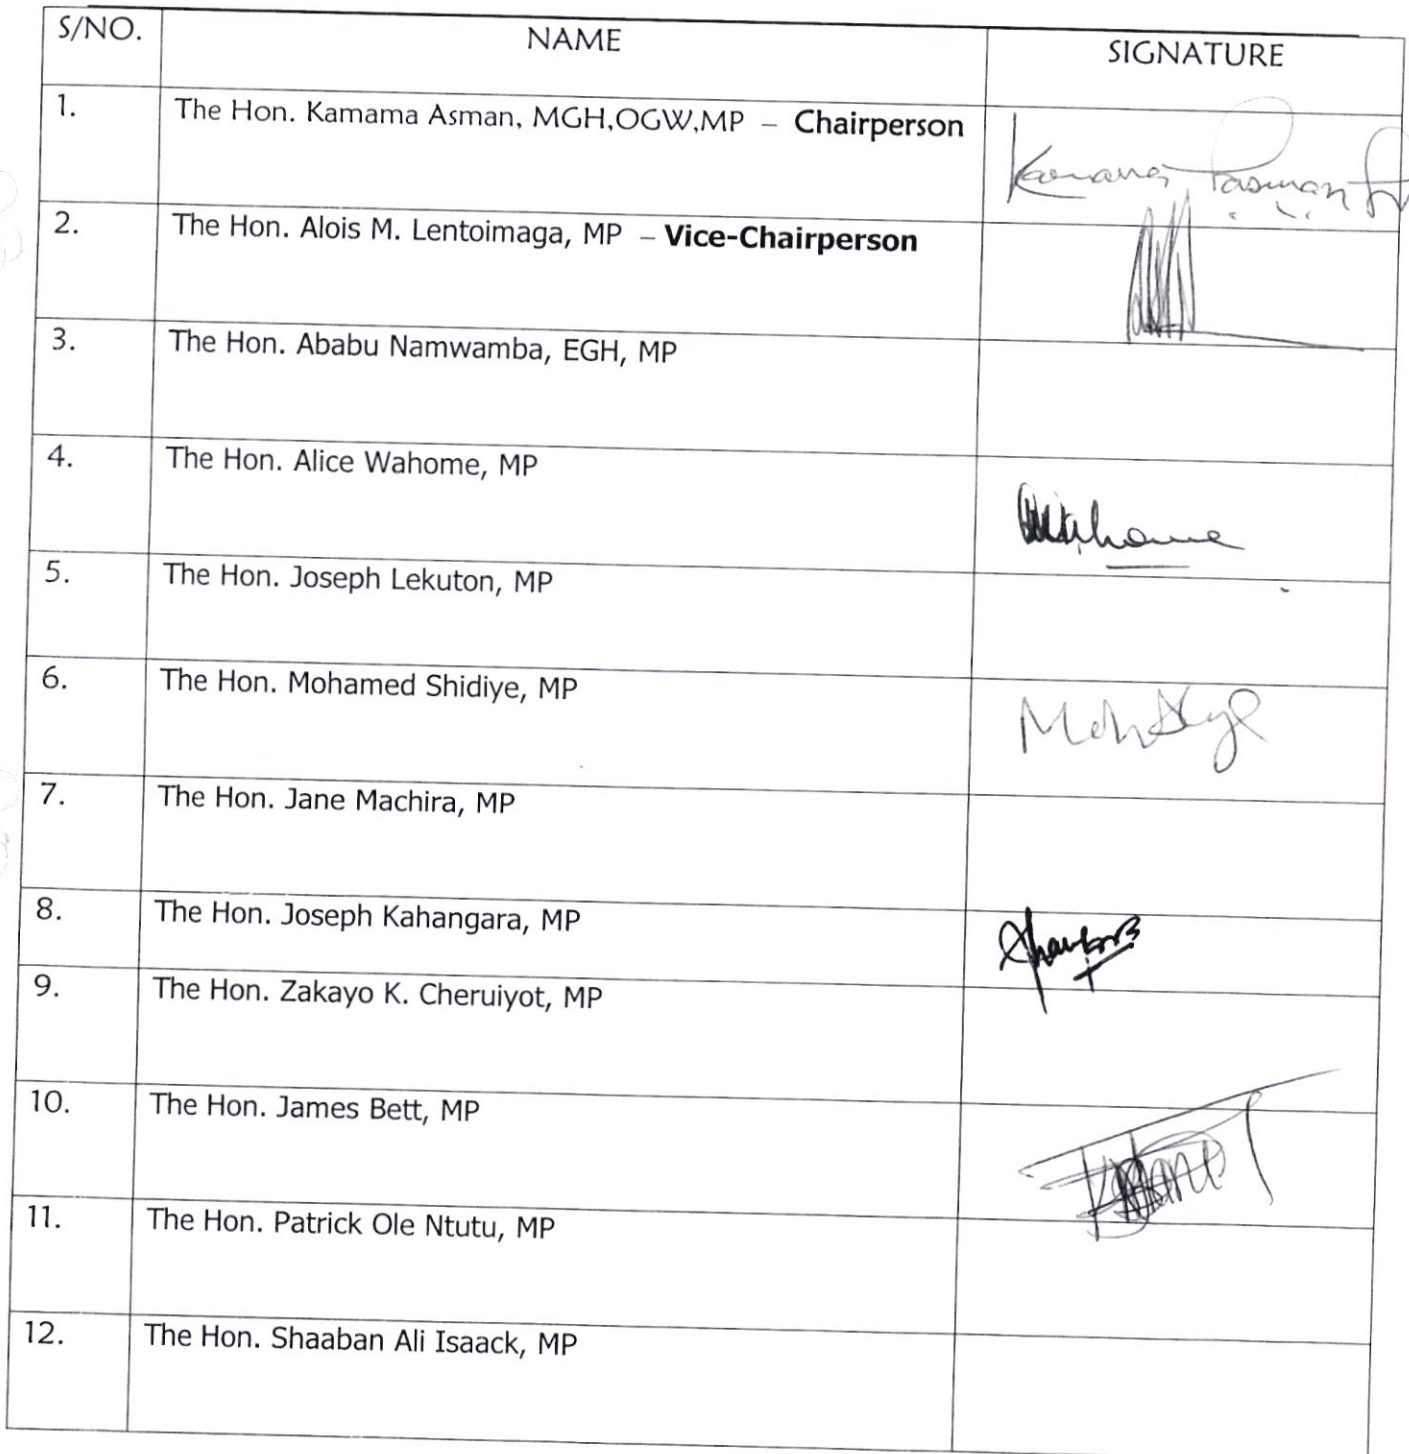 S/NO. NAME SIGNATURE
1. The Hon. Kamama Asman, MGH,OGW,MP – Chairperson
Kamama Asman
2. The Hon. Alois M. Lentoimaga, MP – Vice-Chairperson
3. The Hon. Ababu Namwamba, EGH, MP
4. The Hon. Alice Wahome, MP
Wahome
5. The Hon. Joseph Lekuton, MP
6. The Hon. Mohamed Shidiye, MP
7. The Hon. Jane Machira, MP
8. The Hon. Joseph Kahangara, MP
9. The Hon. Zakayo K. Cheruiyot, MP
10. The Hon. James Bett, MP
11. The Hon. Patrick Ole Ntutu, MP
12. The Hon. Shaaban Ali Isaack, MP